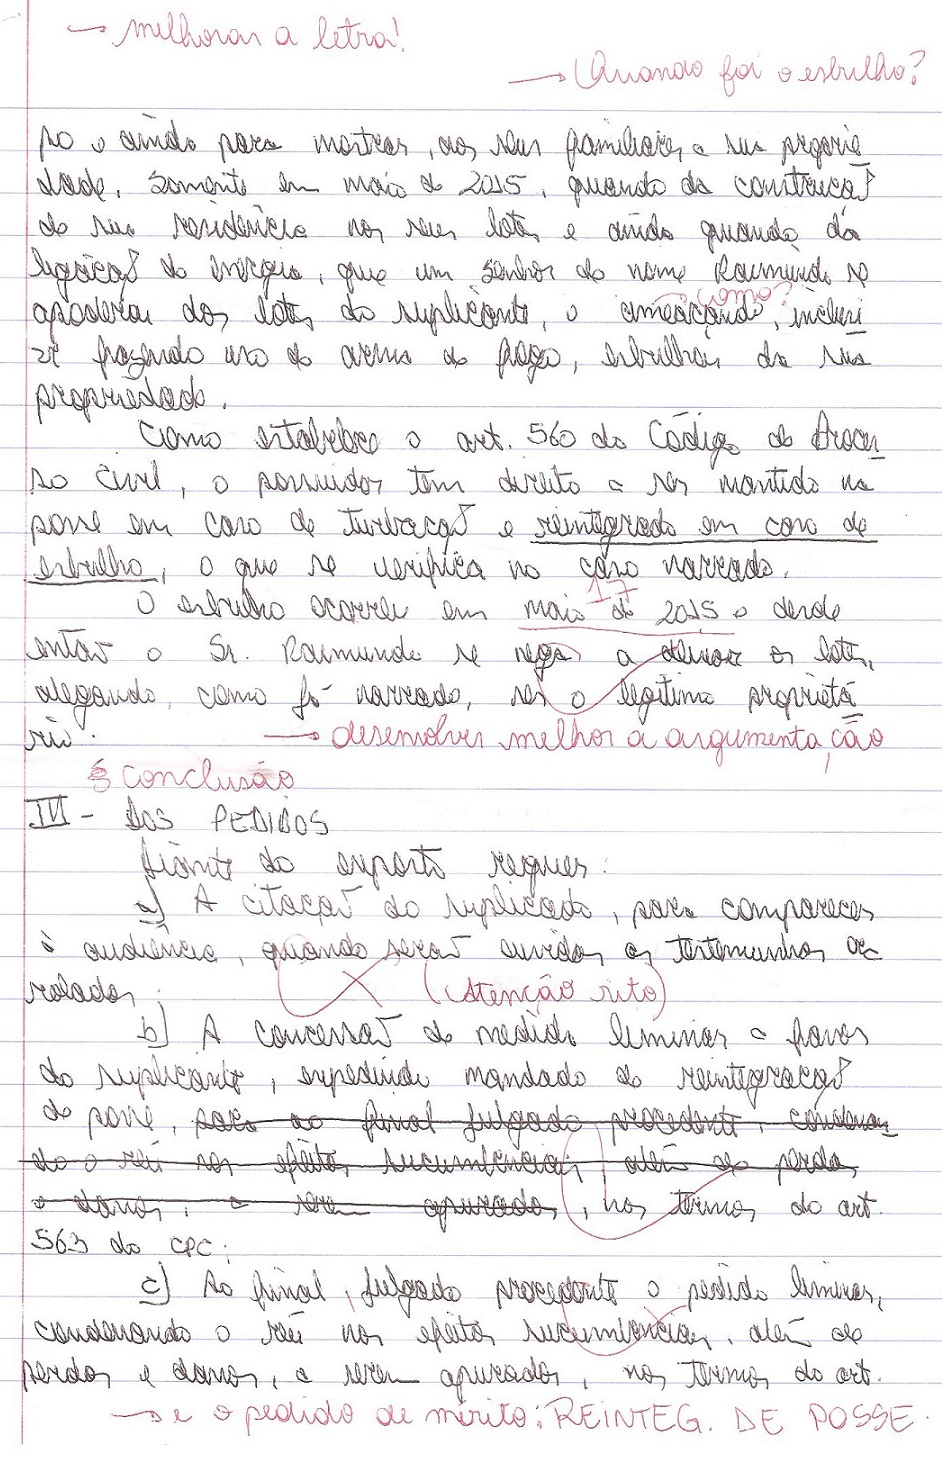 → melhorar a letra!
→ Quando foi o esbulho?
po e ainda para mostrar, aos seus familiares, a sua proprie
dade. Somente em maio de 2015, quando da construção
de sua residência nos seus lotes e ainda quando da
ligação de energia, que um senhor de nome Raimundo se
→ como?
apoderou dos lotes do suplicante, o ameaçando, inclusi
ve fazendo uso de arma de fogo, esbulhou da sua
propriedade.
Como estabelece o art. 560 do Código de Proces
so Civil, o possuidor tem direito a ser mantido na
posse em caso de turbação e reintegrado em caso de
esbulho, o que se verifica no caso narrado.
17
O esbulho ocorreu em maio de 2015 e desde
então o Sr. Raimundo se nega a deixar os lotes,
alegando, como foi narrado, ser o legítimo proprietá
rio.
→ desenvolver melhor a argumentação
conclusão
III - DOS PEDIDOS
Diante do exposto requer:
a) A citação do suplicado, para comparecer
à audiência, quando serão ouvidas as testemunhas ar
roladas;
(Atenção rito)
b) A concessão de medida liminar a favor
do suplicante, expedindo mandado de reintegração
de posse, para ao final julgado procedente, condenan
do o réu nos efeitos sucumbenciais, além de perdas
e danos, a serem apurados, nos termos do art.
563 do CPC;
c) Ao final, julgado procedente o pedido liminar,
condenando o réu nos efeitos sucumbenciais, além de
perdas e danos, a serem apurados, nos termos do art.
→ e o pedido de mérito: REINTEG. DE POSSE.